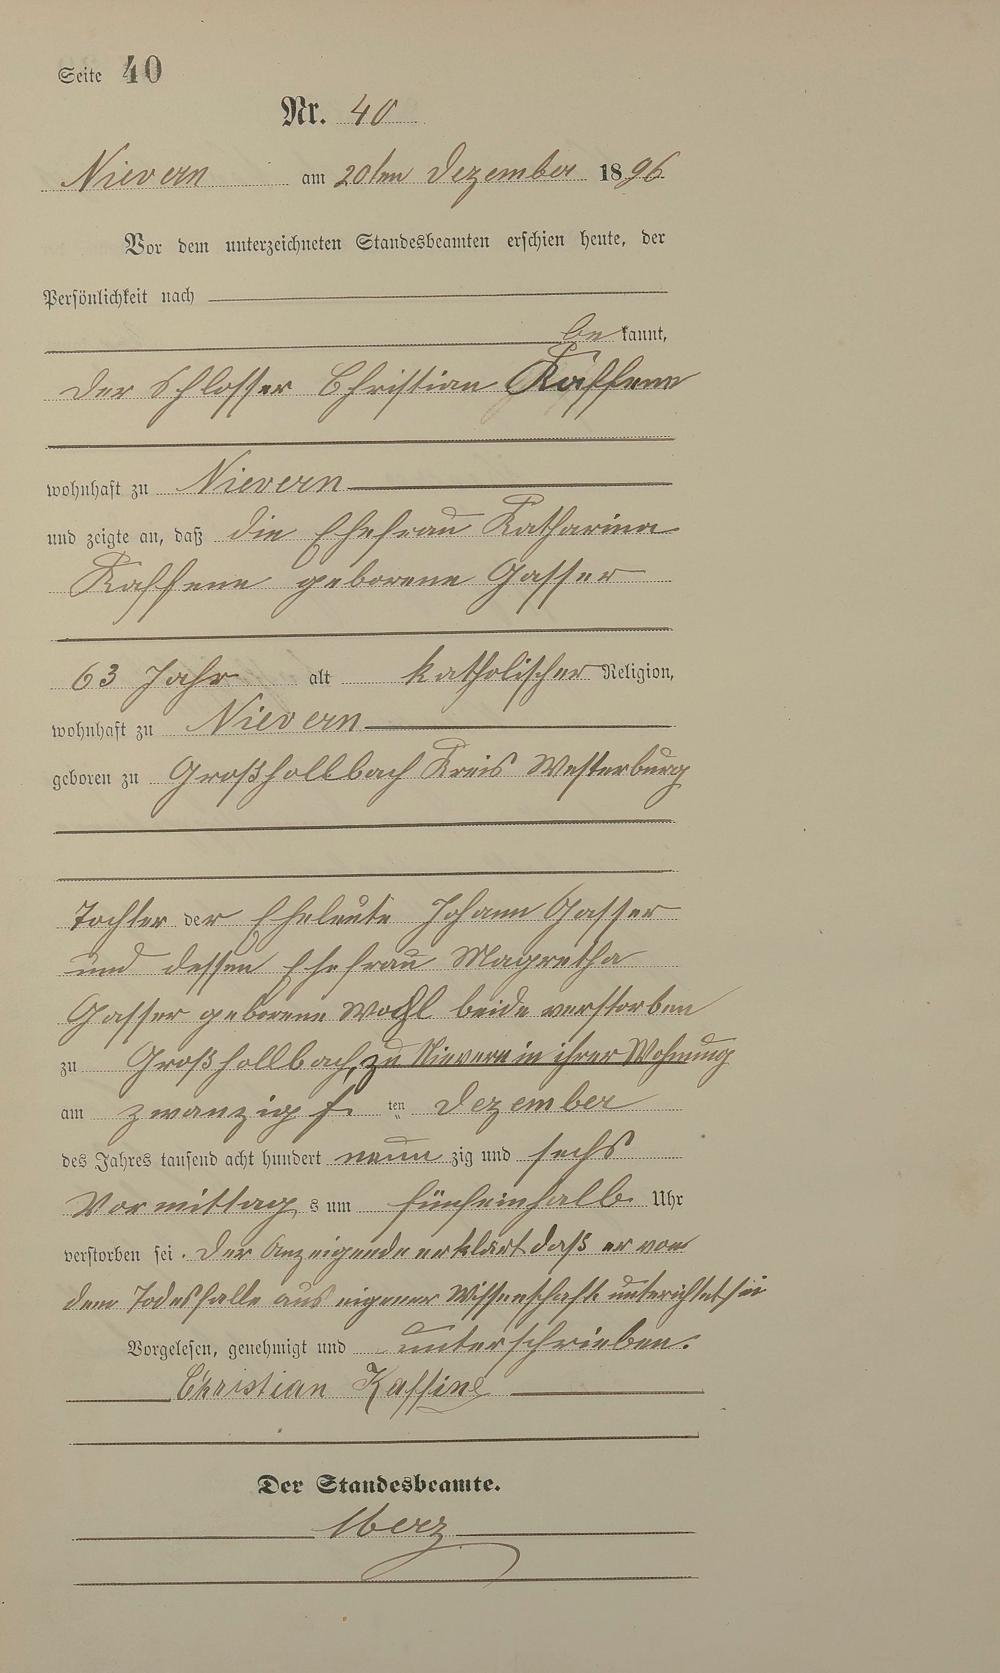 Seite 40
Nr. 40
Nievern am 20ten Dezember 1896
Vor dem unterzeichneten Standesbeamten erschien heute, der
Persönlichkeit nach
be kannt,
der Schlosser Christian Kaffene
wohnhaft zu Nievern
und zeigte an, daß die Ehefrau Katharina
Kaffene geborene Gasser
63 Jahr alt katholischer Religion,
wohnhaft zu Nievern
geboren zu Großhollbach Kreis Westerburg
Tochter der Eheleute Johann Gasser
und dessen Ehefrau Magretha
Gasser geborene beide verstorben
zu Großhollbach, zu Nievern in ihrer Wohnung
am zwanzigs ten Dezember
des Jahres tausend acht hundert neun zig und sechs
Vormittag s um fünfeinhalb Uhr
verstorben sei. Der Anzeigende erklärt daß er von
dem Todesfalle aus eigener Wissenschaft unterichtet sei
Vorgelesen, genehmigt und unterschrieben.
Christian Kaffine
Der Standesbeamte.